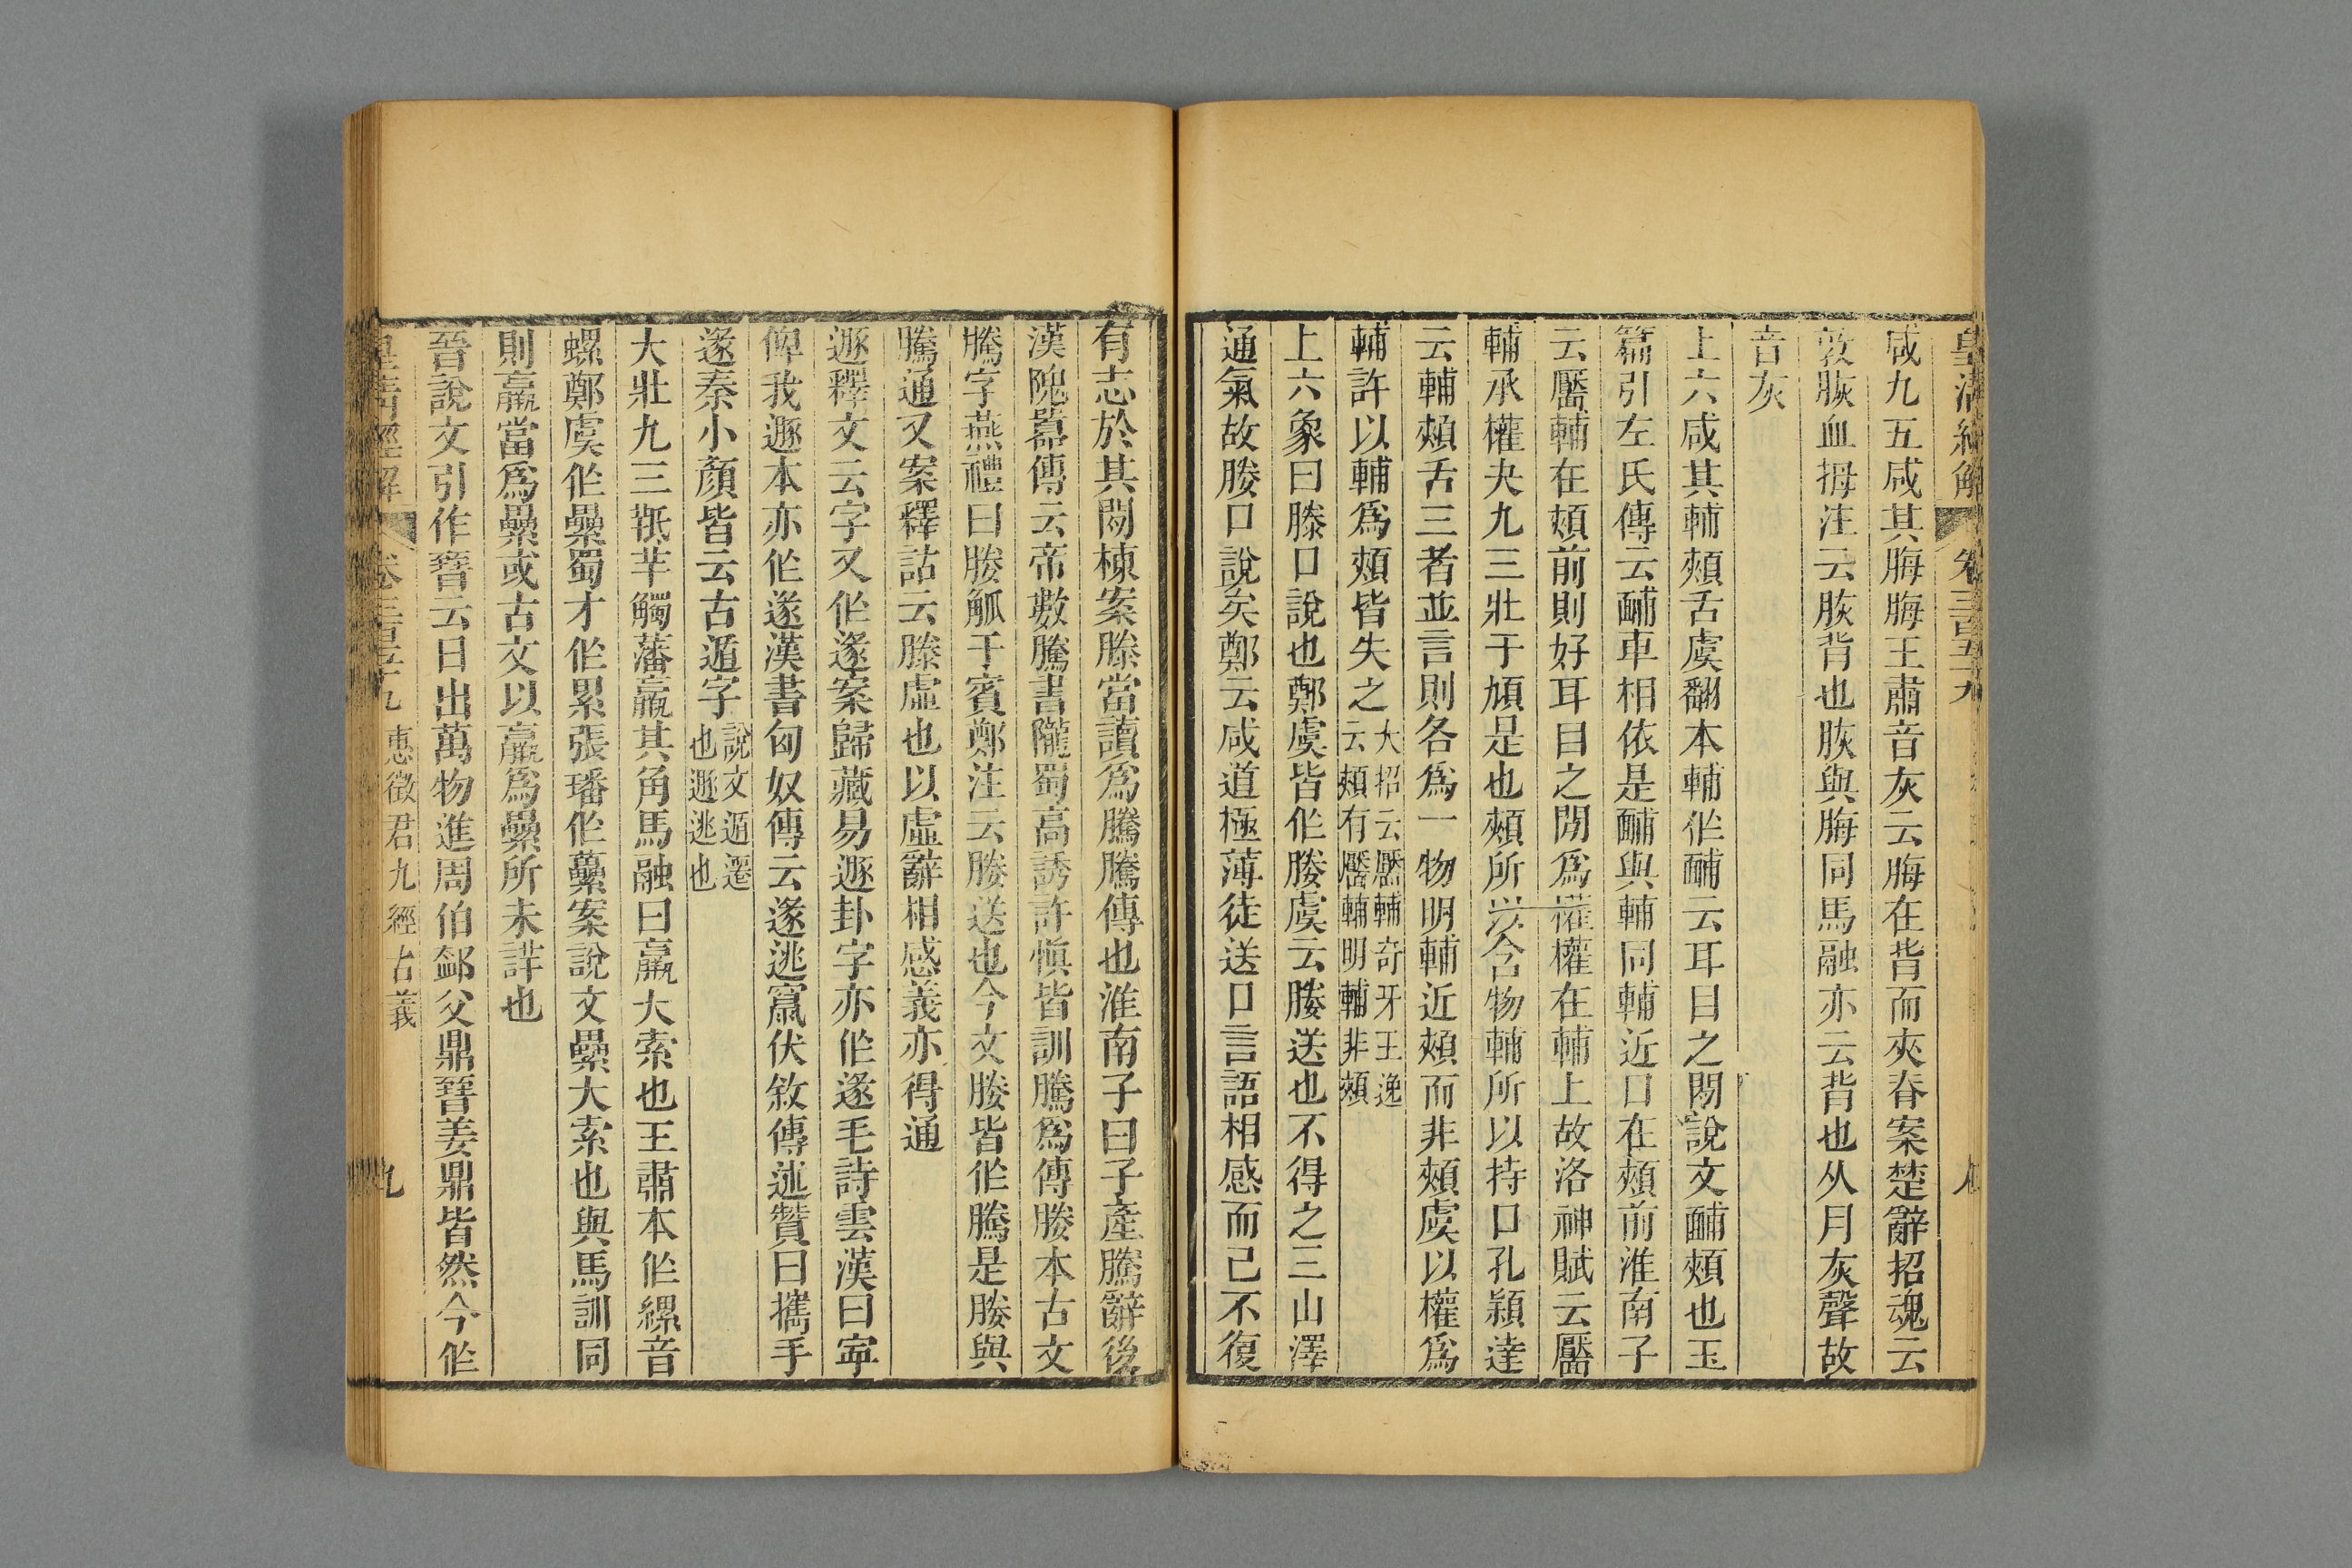 皇清經解 卷三百五十九 八
咸九五咸其脢脢王肅音灰云脢在背而夾脊案楚辭招魂云
敦脄血拇注云脄背也脄與脢同馬融亦云背也从月灰聲故
音灰
上六咸其輔頰舌虞翻本輔作䩉云耳目之閒說文䩉頰也玉
篇引左氏傳云䩉車相依是䩉與輔同輔近口在頰前淮南子
云靨輔在頰前則好耳目之閒爲權權在輔上故洛神賦云靨
輔承權夬九三壯于頄是也頰所以含物輔所以持口孔穎達
云輔頰舌三者並言則各爲一物明輔近頰而非頰虞以權爲
輔許以輔爲頰皆失之大招云靨輔奇牙王逸云頰有靨輔明輔非頰
上六象曰滕口說也鄭虞皆作媵虞云媵送也不得之三山澤
通氣故媵口說矣鄭云咸道極薄徒送口言語相感而已不復
有志於其閒棟案滕當讀爲騰騰傳也淮南子曰子產騰辭後
漢隗囂傳云帝數騰書隴蜀高誘許慎皆訓騰爲傳媵本古文
騰字燕禮曰媵觚于賓鄭注云媵送也今文媵皆作騰是媵與
騰通又案釋詁云滕虛也以虛辭相感義亦得通
遯釋文云字又作遂案歸藏易遯卦字亦作遂毛詩雲漢曰寧
俾我遯本亦作遂漢書匈奴傳云遂逃竄伏敘傳述贊曰攜手
遂秦小顏皆云古遁字說文遁遷也遯逃也
大壯九三羝羊觸藩羸其角馬融曰羸大索也王肅本作縲音
螺鄭虞作纍蜀才作累張璠作虆案說文纍大索也與馬訓同
則羸當爲纍或古文以羸爲纍所未詳也
晉說文引作𣌼云日出萬物進周伯郄父鼎𣌼姜鼎皆然今作
皇清經解 卷三百五十九 惠徵君九經古義 九